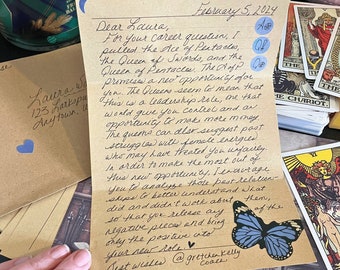 February 5, 2024
Dear Laura,
For your career question, I
pulled the Ace of Pentacles,
the Queen of Swords, and the
Queen of Pentacles. The AoP
promises a new opportunity for
you. The Queens seem to mean that
this is a leadership role, one that
would give you control and an
opportunity to make more money.
The queens can also suggest past
struggles with female energies
who may have treated you unfairly.
In order to make the most out of
this new opportunity, I encourage
you to analyze those past relation-
ships to better understand what
did and didn't work about them,
so that you release any
negative pieces and bring
only the positive into
your new role.
Best wishes @gretchen.kelly
coach
AoP
QS
QP
Laura
123
Anytown
THE CHARIOT.